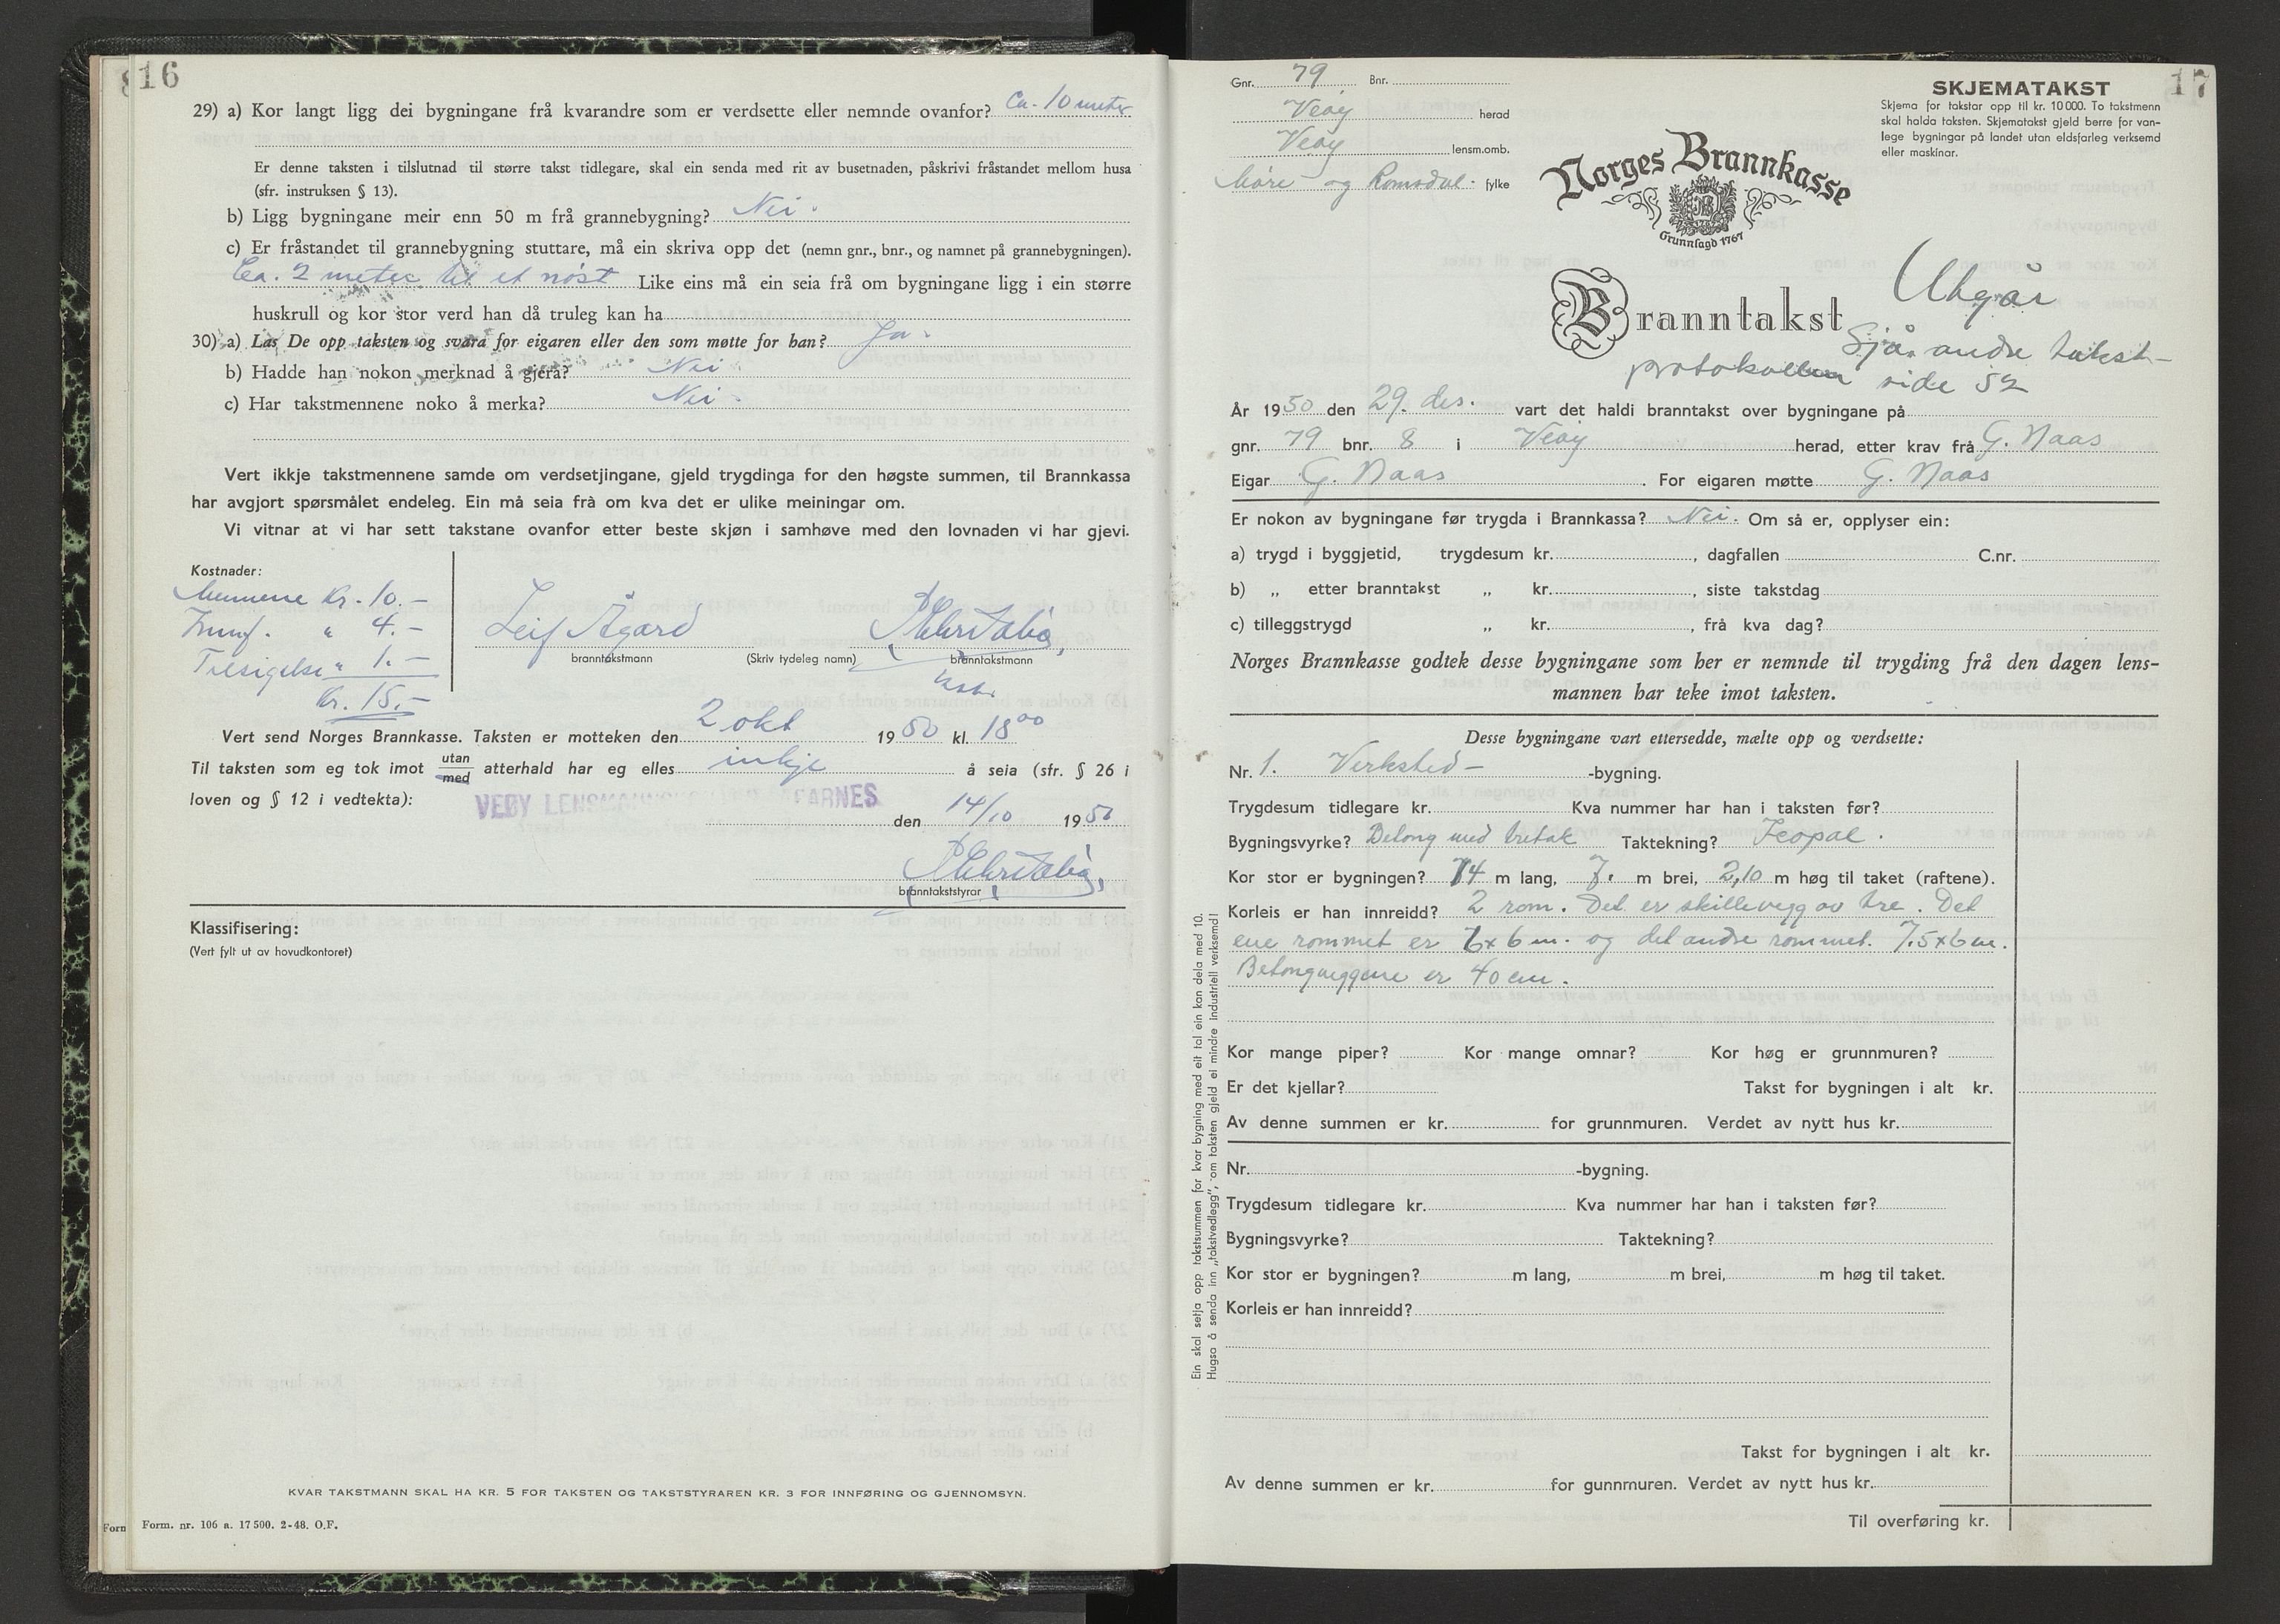 16
29) a) Kor langt ligg dei bygningane frå kvarandre som er verdsette eller nemnde ovanfor? Ca. 10 meter
Er denne taksten i tilslutnad til større takst tidlegare, skal ein senda med rit av busetnaden, påskrivi fråstandet mellom husa
(sfr. instruksen § 13).
b) Ligg bygningane meir enn 50 m frå grannebygning? Nei.
c) Er fråstandet til grannebygning stuttare, må ein skriva opp det (nemn gnr., bnr., og namnet på grannebygningen).
Ca. 2 meter til et nøst Like eins må ein seia frå om bygningane ligg i ein større
huskrull og kor stor verd han då truleg kan ha
30) a) Las De opp taksten og svara for eigaren eller den som møtte for han? Ja.
b) Hadde han nokon merknad å gjera? Nei
c) Har takstmennene noko å merka? Nei.
Vert ikkje takstmennene samde om verdsetjingane, gjeld trygdinga for den høgste summen, til Brannkassa
har avgjort spørsmålet endeleg. Ein må seia frå om kva det er ulike meiningar om.
Vi vitnar at vi har sett takstane ovanfor etter beste skjøn i samhøve med den lovnaden vi har gjevi.
Kostnader:
Mennene Kr. 10.-
Innf. " 4.-
Tilsigelse " 1.-
Kr. 15.-
Leif Ågard
branntakstmann (Skriv tydeleg namn) branntakstmann
Vert send Norges Brannkasse. Taksten er motteken den 2 okt 1950 kl. 18 00
Til taksten som eg tok imot utan/med atterhald har eg elles inkje å seia (sfr. § 26 i
loven og § 12 i vedtekta):
VEØY
den 14/10 1950
branntakststyrar
Klassifisering:
(Vert fylt ut av hovudkontoret)
KVAR TAKSTMANN SKAL HA KR. 5 FOR TAKSTEN OG TAKSTSTYRAREN KR. 3 FOR INNFØRING OG GJENNOMSYN.
Form Form. nr. 106 a. 17 500. 2-48. O.F.
17
Gnr. 79 Bnr.
Veøy herad
Veøy lensm.omb.
Møre og Romsdal. fylke
SKJEMATAKST
Skjema for takstar opp til kr. 10 000. To takstmenn
skal halda taksten. Skjematakst gjeld berre for van-
lege bygningar på landet utan eldsfarleg verksemd
eller maskinar.
Norges Brannkasse
Grunnlagd 1767
Branntakst
Utgår
Sjå andre takst-
protokollen side 52
År 1950 den 29. des. vart det haldi branntakst over bygningane på
gnr. 79 bnr. 8 i Veøy herad, etter krav frå G. Naas
Eigar G. Naas. For eigaren møtte G. Naas
Er nokon av bygningane før trygda i Brannkassa? Nei. Om så er, opplyser ein:
a) trygd i byggjetid, trygdesum kr. , dagfallen C.nr.
b) „ etter branntakst „ kr. , siste takstdag
c) tilleggstrygd „ kr. , frå kva dag?
Norges Brannkasse godtek desse bygningane som her er nemnde til trygding frå den dagen lens-
mannen har teke imot taksten.
Desse bygningane vart ettersedde, mælte opp og verdsette:
Nr. 1. Verksted- -bygning.
Trygdesum tidlegare kr. Kva nummer har han i taksten før?
Bygningsvyrke? Betong med tretak Taktekning? Icopal.
Kor stor er bygningen? 14 m lang, 7. m brei, 2,10 m høg til taket (raftene).
Korleis er han innreidd? 2 rom. Det er skillevegg av tre. Det
ene rommet er 6x6 m. og det andre rommet. 7.5x6 m.
Betongveggene er 40 cm.
Kor mange piper? Kor mange omnar? Kor høg er grunnmuren?
Er det kjellar? Takst for bygningen i alt kr.
Av denne summen er kr. for grunnmuren. Verdet av nytt hus kr.
Nr. -bygning.
Trygdesum tidlegare kr. Kva nummer har han i taksten før?
Bygningsvyrke? Taktekning?
Kor stor er bygningen? m lang, m brei, m høg til taket.
Korleis er han innreidd?
Takst for bygningen i alt kr.
Av denne summen er kr. for gunnmuren. Verdet av nytt hus kr.
Til overføring kr.
Ein skal setja opp takstsummen for kvar bygning med eit tal ein kan dela med 10.
Hugsa å senda inn „takstvedlegg", om taksten gjeld ei mindre industriell verksemd!